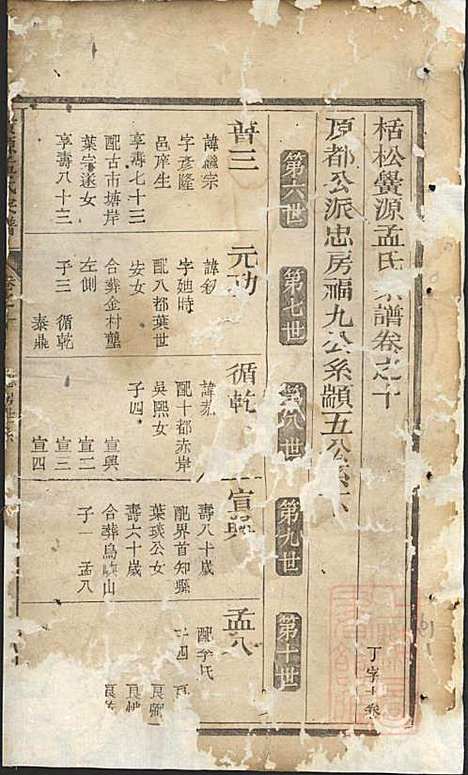 栝松黌源孟氏宗譜卷之十
原都公派忠房福九公系顓五公
丁字十卷
第六世
第七世
第八世
第九世
第十世
普三
諱繼宗
字彥隆
邑庠生
享壽七十三
配古市塘岸
葉宗遂女
享壽八十三
元功
字廸時
配八都葉世
安女
合葬金村壟
左側
子三 循乾
泰鼎
循乾
配十都赤岸
吳熙女
子四
宣興
宣二
宣三
宣四
宣興
壽八十歲
配界首知縣
葉琰公女
壽六十歲
合葬烏峰山
子一 孟八
孟八
配季氏
子四